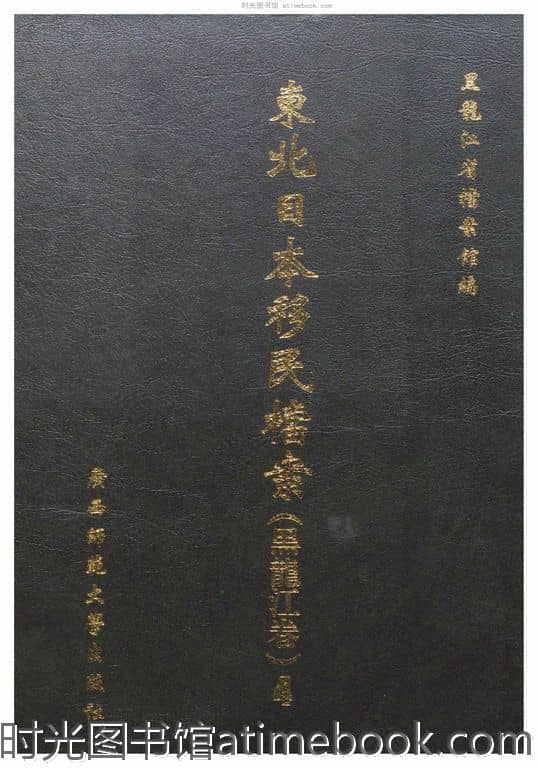 时光图书馆 atimebook.com
黑龍江省檔案館編
東北日本移民檔案（黑龍江卷）
廣西師範大學出版社
时光图书馆atimebook.com